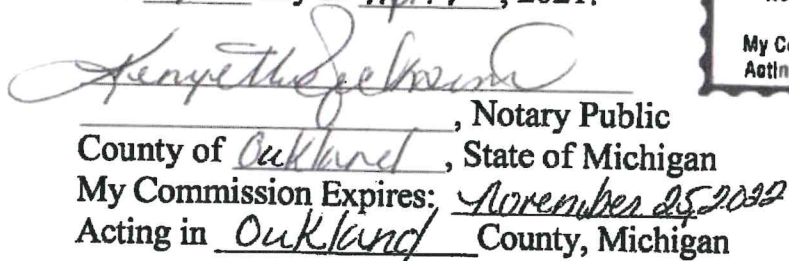 , 2021.
My Co
Actin
, Notary Public
County of Oakland, State of Michigan
My Commission Expires: November 25, 2022
Acting in Oakland County, Michigan